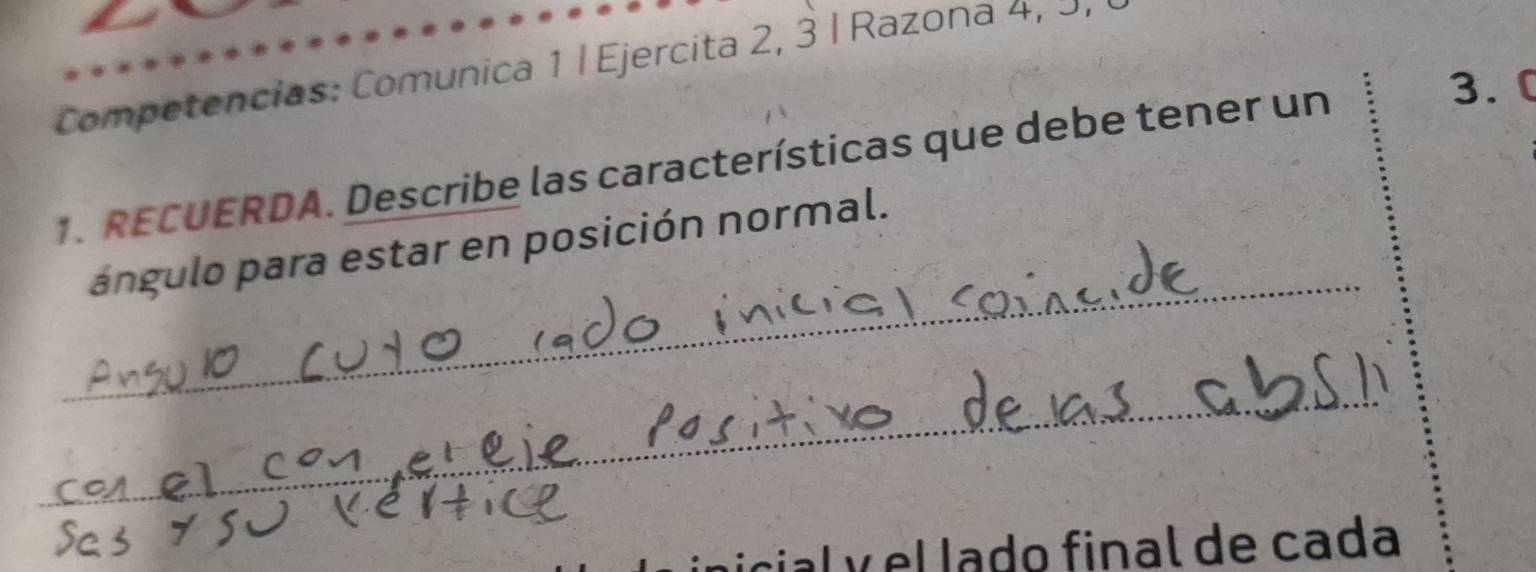 Competencias: Comunica 1 | Ejercita 2, 3 | Razona 4,
1. RECUERDA. Describe las características que debe tener un
ángulo para estar en posición normal.
Angulo cuyo lado inicial coincide
con el con el eje positivo de las absli
sas y su vértice
inicial y el lado final de cada
3.